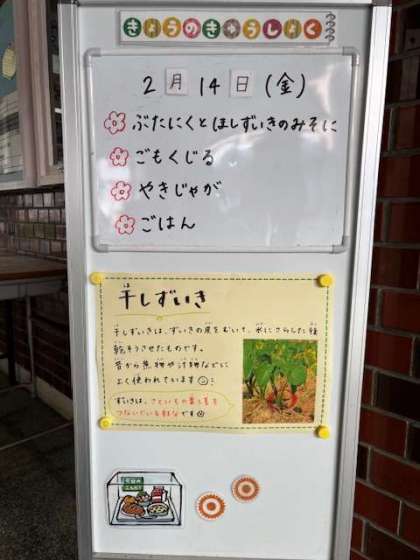 きょうのきゅうしょく
2月14日(金)
ぶたにくとほしずいきのみそに
ごもくじる
やきじゃが
ごはん
干しずいき
干しずいきは、ずいきの皮をむいて、水にさらした後
乾そうさせたものです。
昔から煮物や汁物などに
よく使われています
ずいきは、さといもの葉と茎を
つないでいる部分です